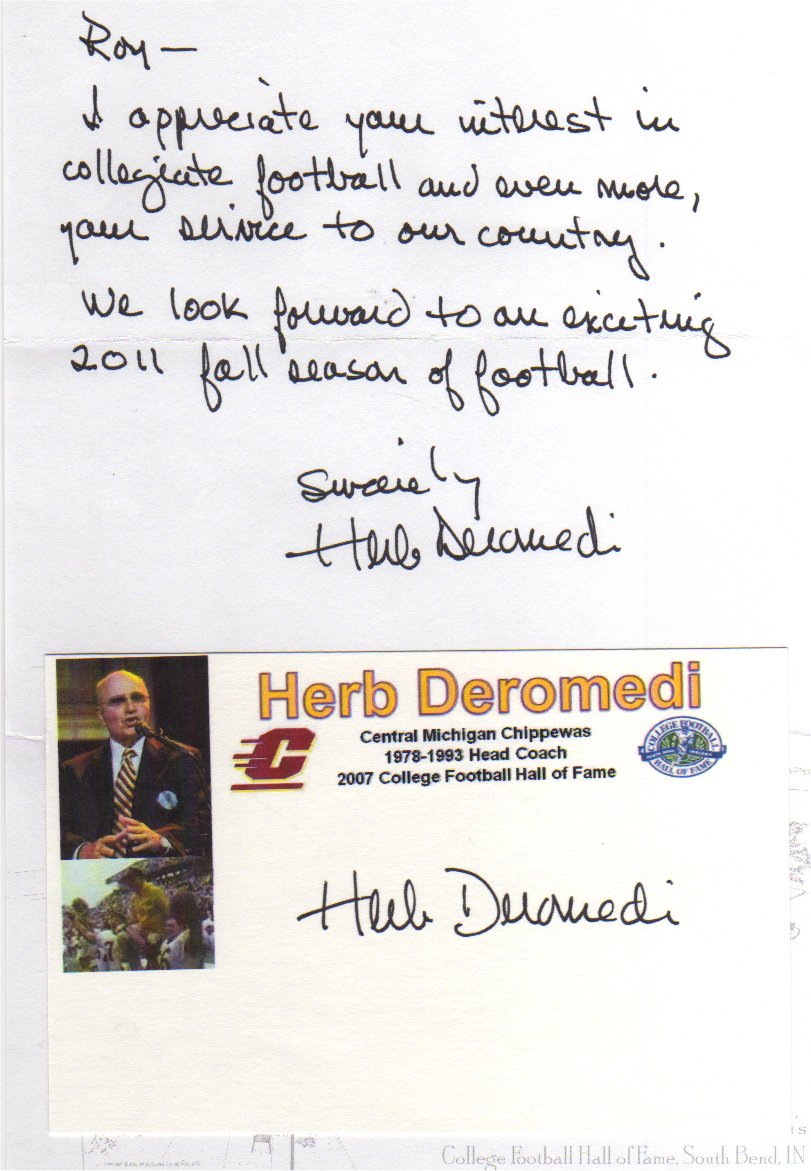 Roy —
I appreciate your interest in
collegiate football and even more,
your service to our country.
We look forward to an exciting
2011 fall season of football.
Sincerely
Herb Deromedi
Herb Deromedi
Central Michigan Chippewas
1978-1993 Head Coach
2007 College Football Hall of Fame
C
COLLEGE FOOTBALL
HALL OF FAME
Herb Deromedi
is
College Football Hall of Fame, South Bend, IN